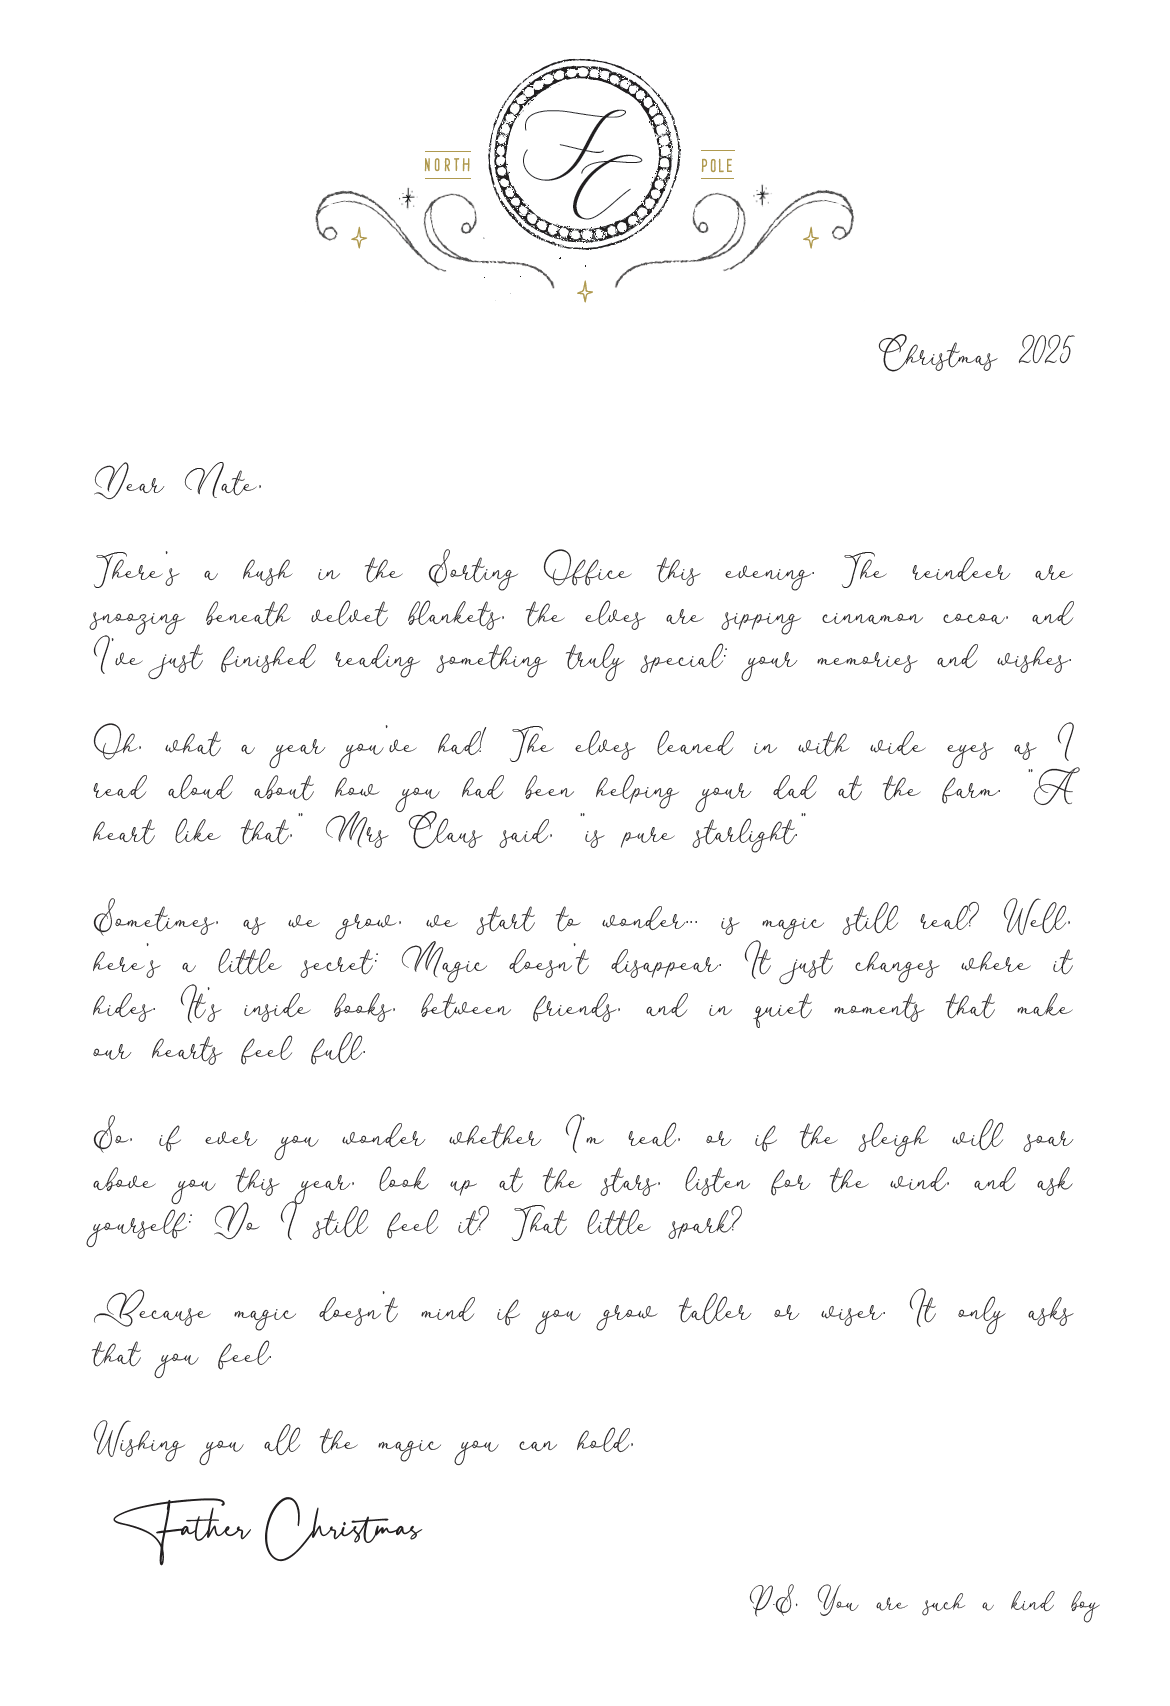 NORTH
FC
POLE
Christmas 2025
Dear Nate,
There's a hush in the Sorting Office this evening. The reindeer are
snoozing beneath velvet blankets, the elves are sipping cinnamon cocoa, and
I've just finished reading something truly special: your memories and wishes.
Oh, what a year you've had! The elves leaned in with wide eyes as I
read aloud about how you had been helping your dad at the farm. "A
heart like that," Mrs Claus said, "is pure starlight."
Sometimes, as we grow, we start to wonder... is magic still real? Well,
here's a little secret: Magic doesn't disappear. It just changes where it
hides. It's inside books, between friends, and in quiet moments that make
our hearts feel full.
So, if ever you wonder whether I'm real, or if the sleigh will soar
above you this year, look up at the stars, listen for the wind, and ask
yourself: Do I still feel it? That little spark?
Because magic doesn't mind if you grow taller or wiser. It only asks
that you feel.
Wishing you all the magic you can hold,
Father Christmas
P.S. You are such a kind boy